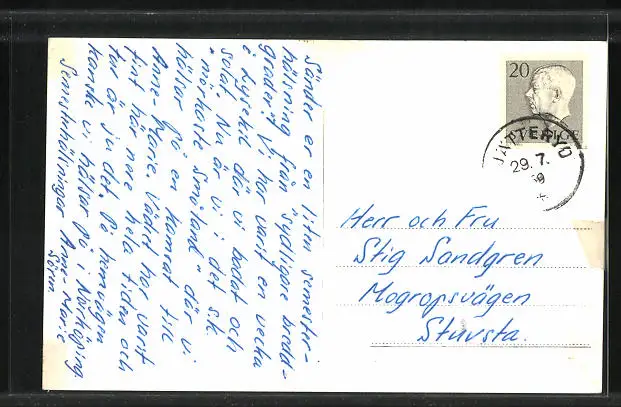 Sänder er en liten semester-
hälsning från "sydligare bredd-
grader". Vi har varit en vecka
i Lysekil där vi badat och
solat. Nu är vi i det s.k.
"mörkaste Småland" där vi
hälsar på en kamrat till
Anne-Marie. Vädret har varit
fint här nere hela tiden och
tur är ju det. På hemvägen
kanske vi hälsar på i Norrköping
Semesterhälsningar Anne-Marie
Sören
20
SVERIGE
JÄTTERYD
29.7.
Herr och Fru
Stig Sandgren
Mogropsvägen
Stuvsta.